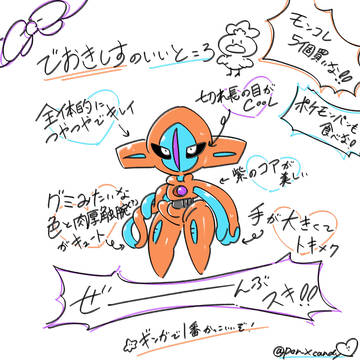 でおきしすのいいところ
モンコレ
5個買いな!!
ポケモンパンも
食べな!
全体的に
つやつやでキレイ
切れ長の目が
COOL
紫のコアが
美しい
グミみたいな
色と肉厚触腕
がキュート
手が大きくて
トキメク
ぜーーーんぶ
スキ!!
ギンガで1番かっこいいぞ!